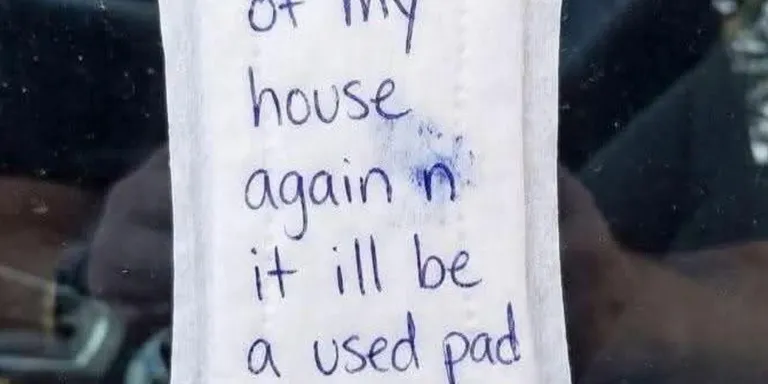 of my
house
again n
it ill be
a used pad